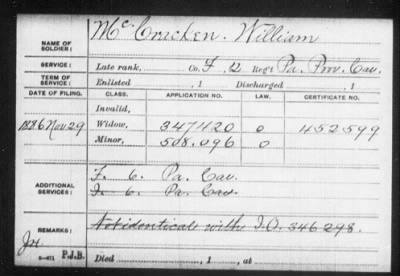 NAME OF SOLDIER: McCracken. William
SERVICE: Late rank, Co. F, 12 Reg't Pa. Prov. Cav.
TERM OF SERVICE: Enlisted , 1 Discharged , 1
DATE OF FILING. CLASS. APPLICATION NO. LAW. CERTIFICATE NO.
Invalid,
1886 Nov 29 Widow, 347420 0 452599
Minor, 508.096 0
ADDITIONAL SERVICES: F. 6. Pa. Cav.
I. 6. Pa. Cav.
REMARKS: Not identical with I.O. 346298.
3-471 P.J.B. Died , 1 , at